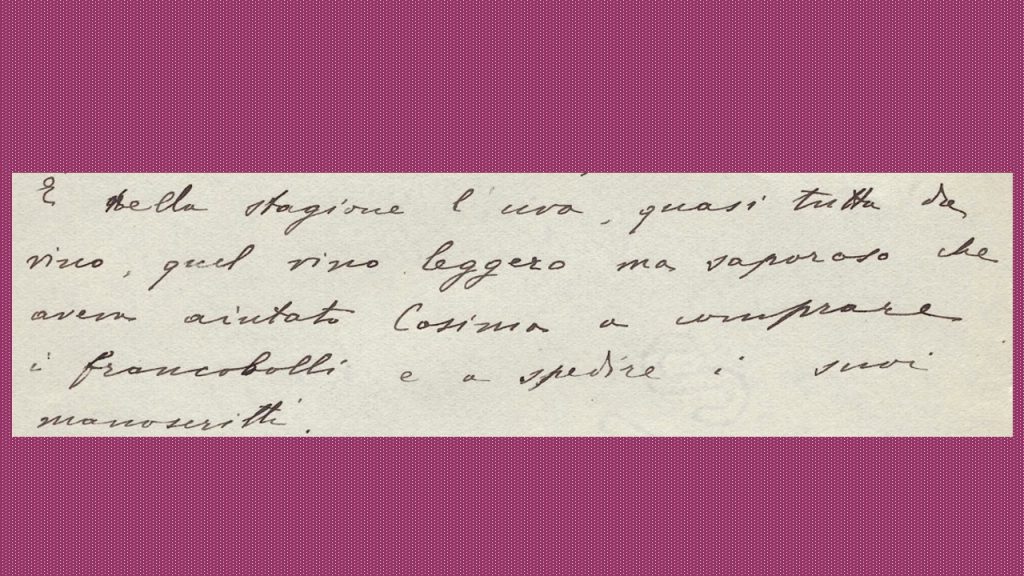 E nella stagione l'uva, quasi tutta da
vino, quel vino leggero ma saporoso che
aveva aiutato Cosima a comprare
i francobolli e a spedire i suoi
manoscritti.